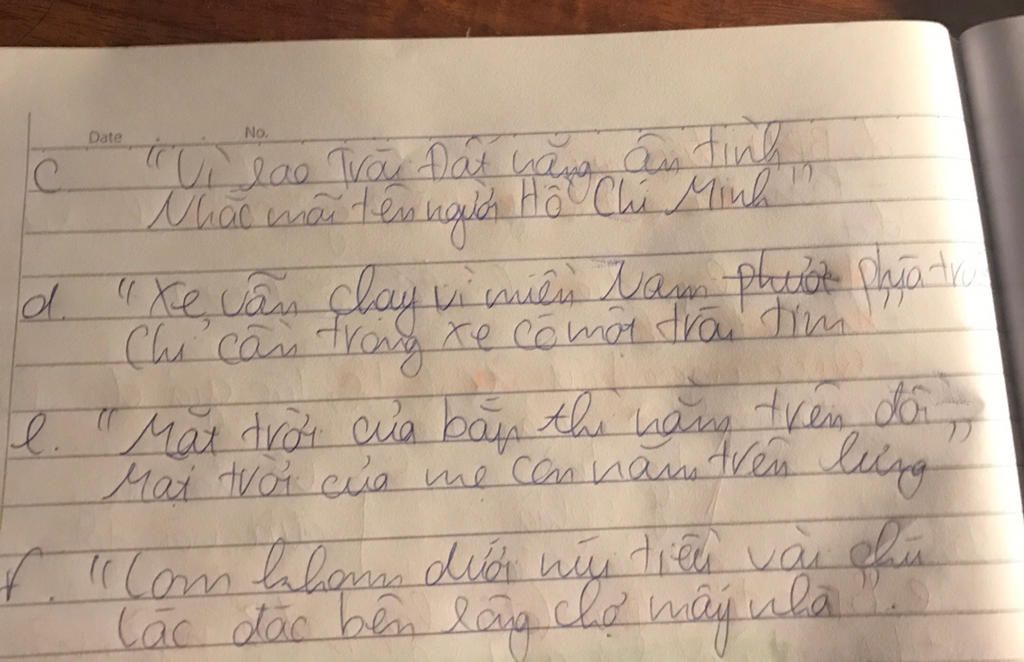 Date No.
c. "Vì sao Trái Đất nặng ân tình
Nhắc mãi tên người Hồ Chí Minh"
d. "Xe vẫn chạy vì miền Nam phướt phía trư
Chỉ cần trong xe có một trái tim
e. "Mặt trời của bắp thì nằm trên đồi
Mặt trời của mẹ con nằm trên lưng"
f. "Lom khom dưới núi tiều vài chú
Lác đác bên sông chợ mấy nhà".